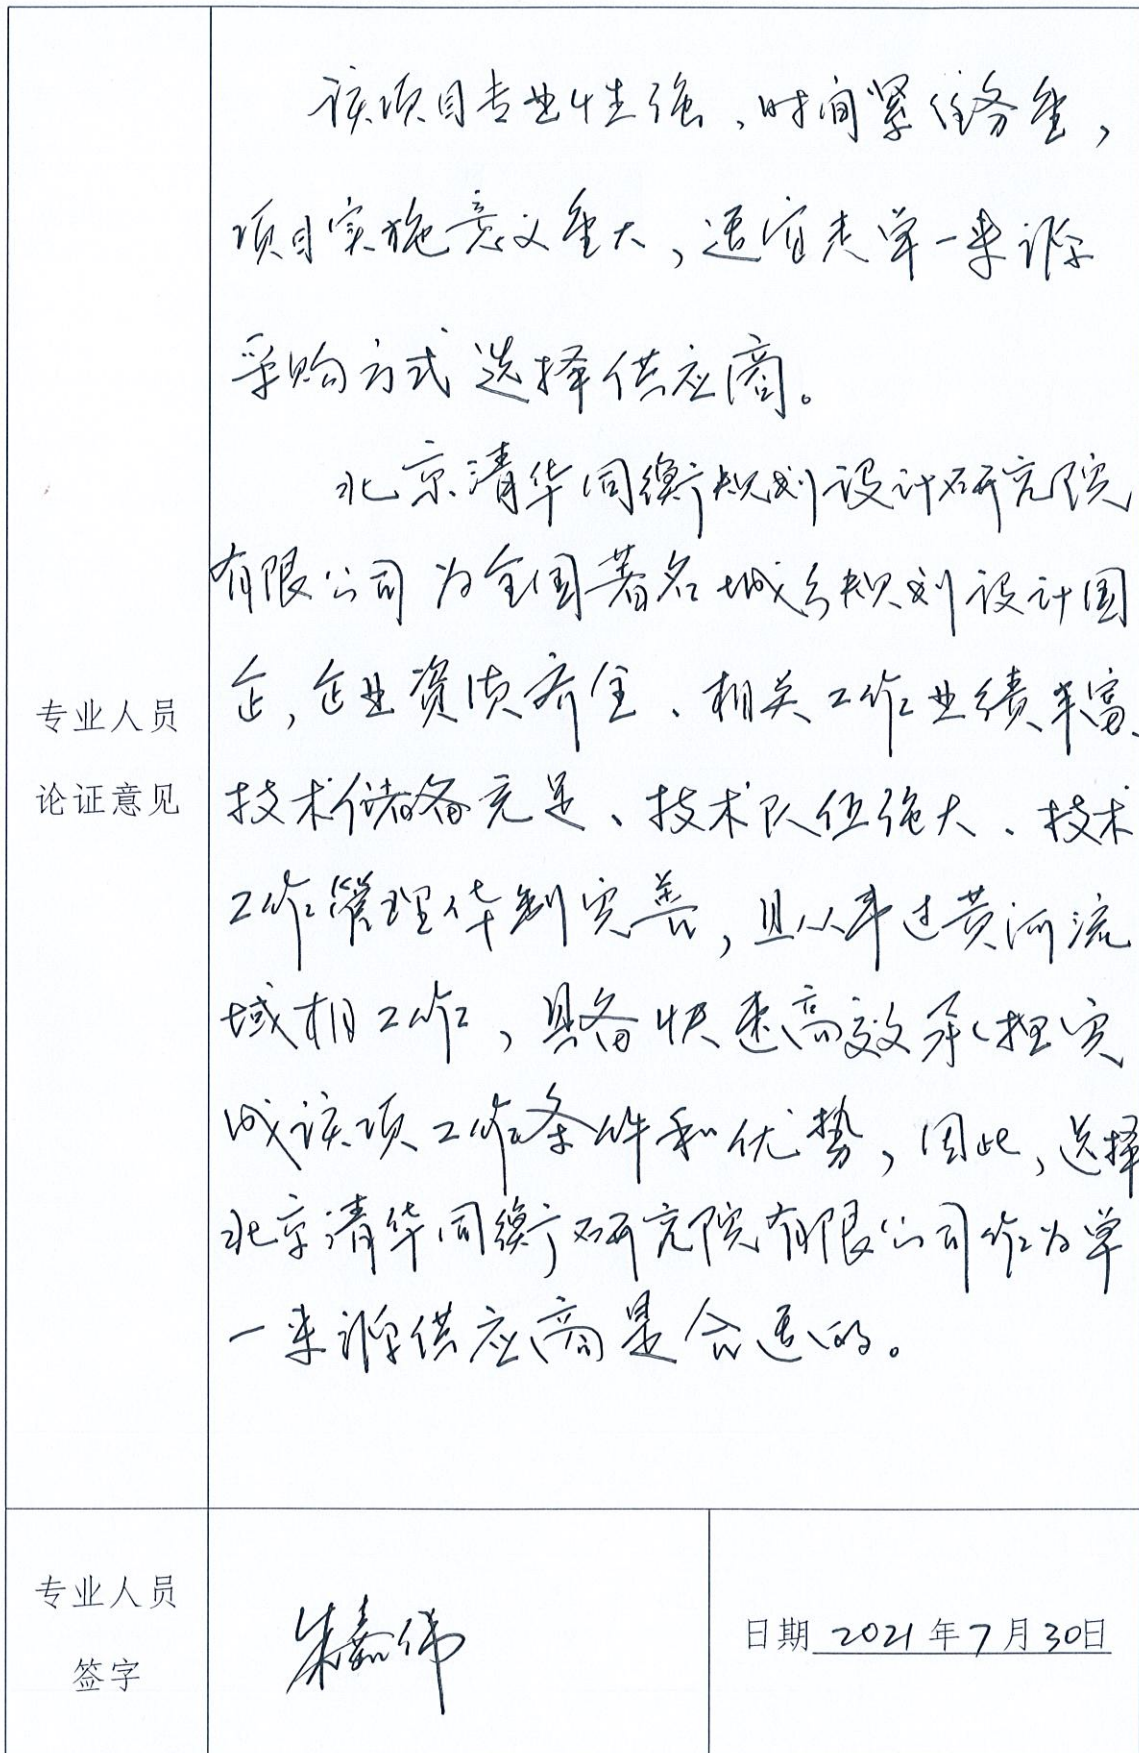 该项目专业性强、时间紧任务重，
项目实施意义重大，适宜走单一来源
采购方式选择供应商。
北京清华同衡规划设计研究院
有限公司为全国著名城乡规划设计国
企，企业资质齐全、相关工作业绩丰富、
技术储备充足、技术队伍强大、技术
工作管理体制完善，且从事过黄河流
域相工作，具备快速高效承担完
成该项工作条件和优势，因此，选择
北京清华同衡研究院有限公司作为单
一来源供应商是合适的。
专业人员
论证意见
专业人员
签字
朱嘉伟
日期 2021年7月30日